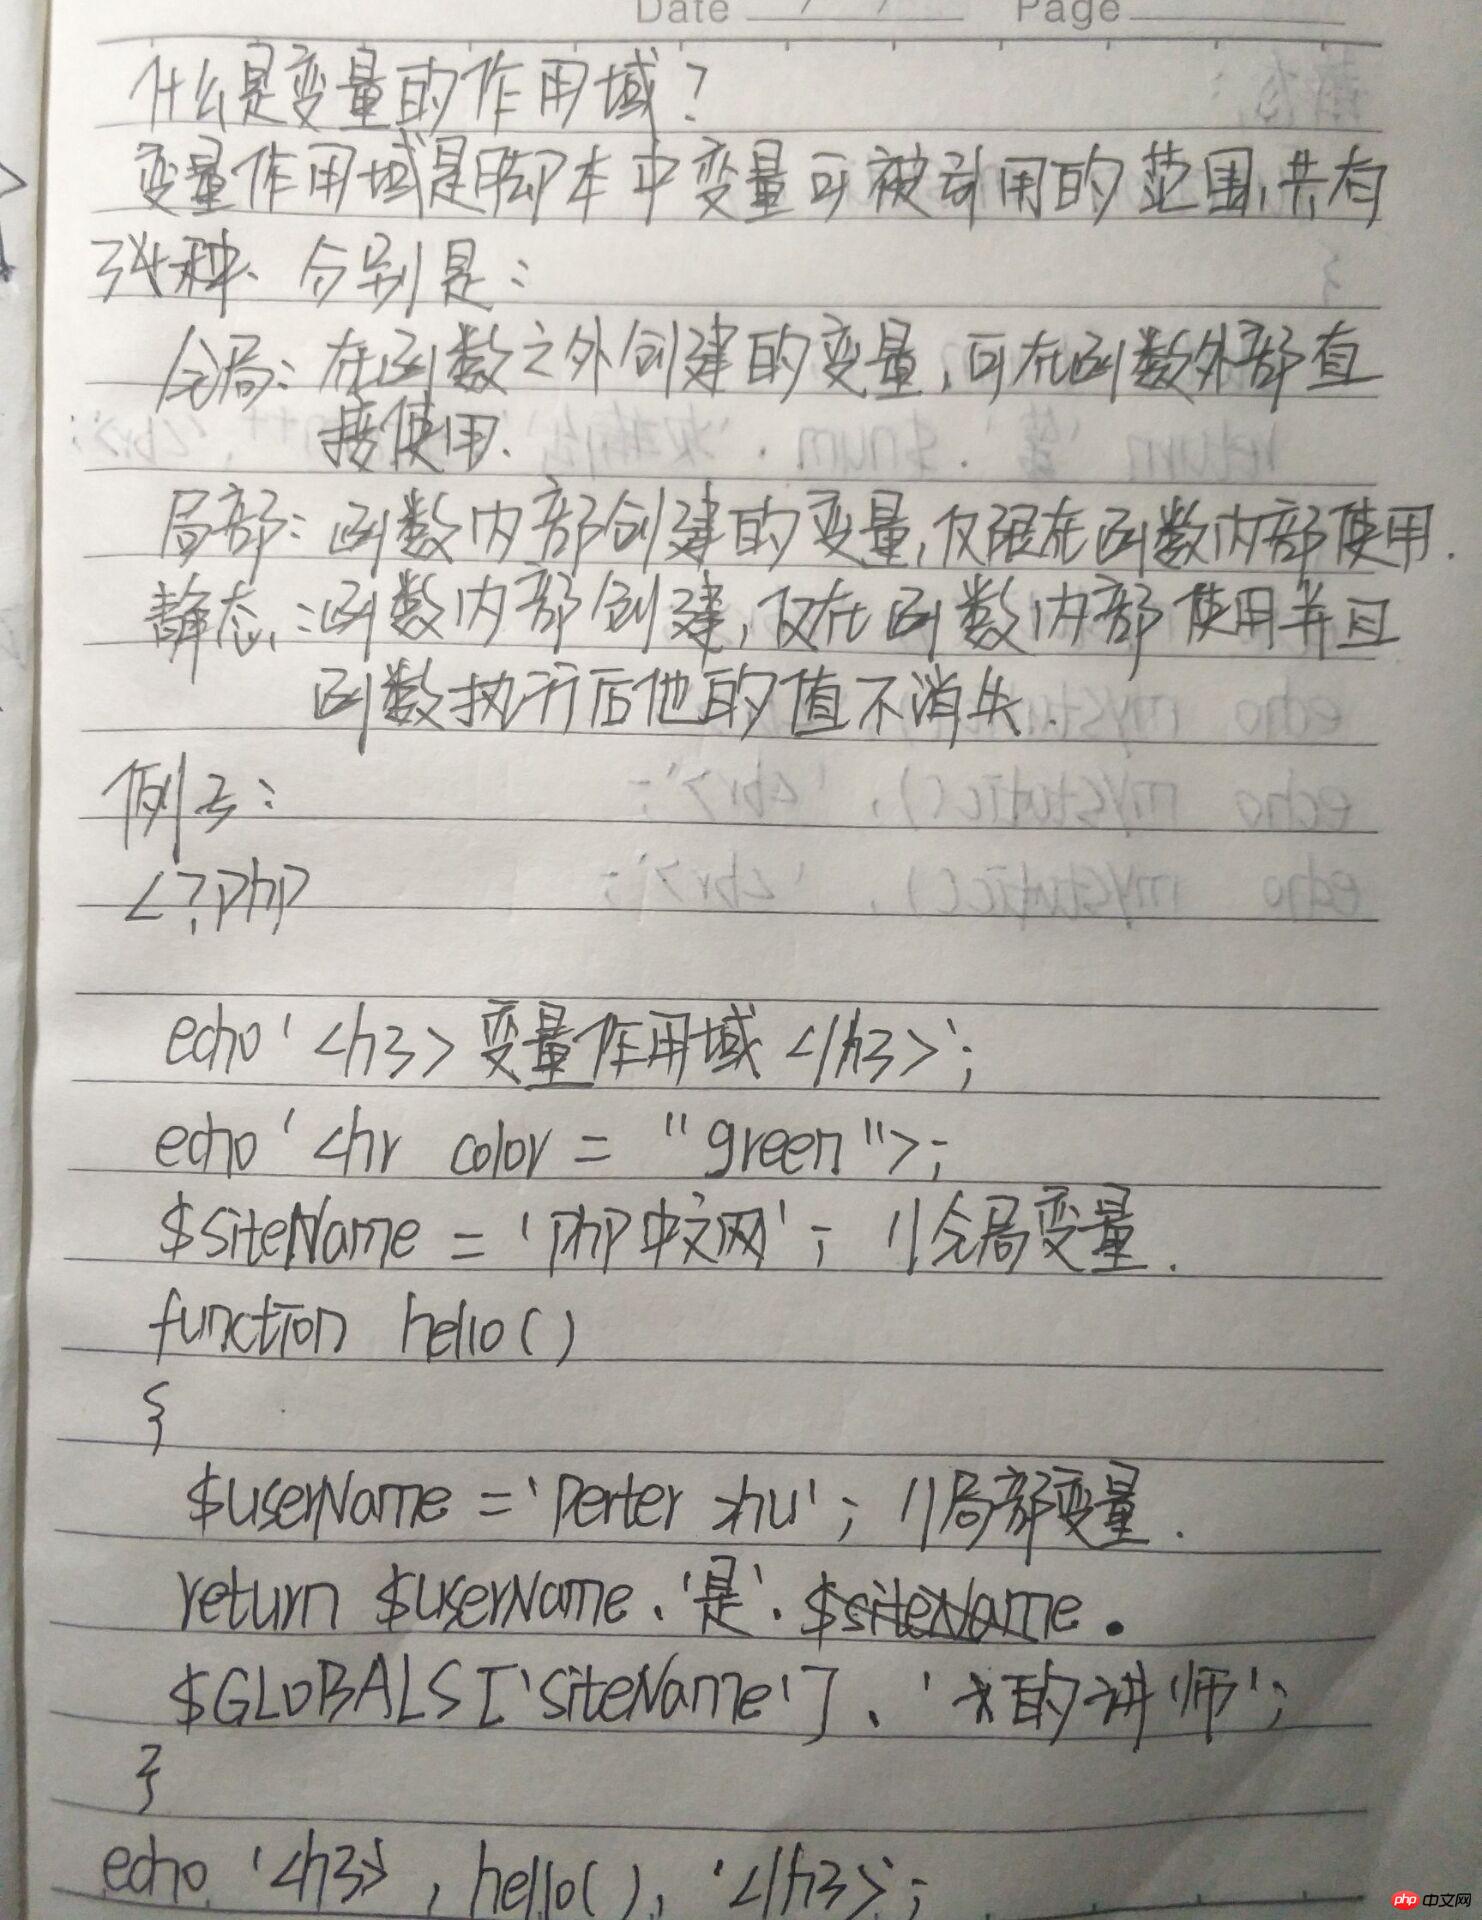 Date / / Page
什么是变量的作用域?
变量作用域是脚本中变量可被引用的范围,共有
3种、分别是:
全局:在函数之外创建的变量,可在函数外部直
接使用.
局部:函数内部创建的变量,仅限在函数内部使用.
静态:函数内部创建,仅在函数内部使用并且
函数执行后他的值不消失.
例子:
<?php
echo '<h3>变量作用域</h3>';
echo '<hr color = "green">;
$siteName = 'php中文网'; //全局变量.
function hello()
{
$userName = 'Perter zhu'; //局部变量.
return $userName.'是'.$siteName.
$GLOBALS['siteName'].'的讲师';
}
echo '<h3>, hello(), '</h3>';
php中文网